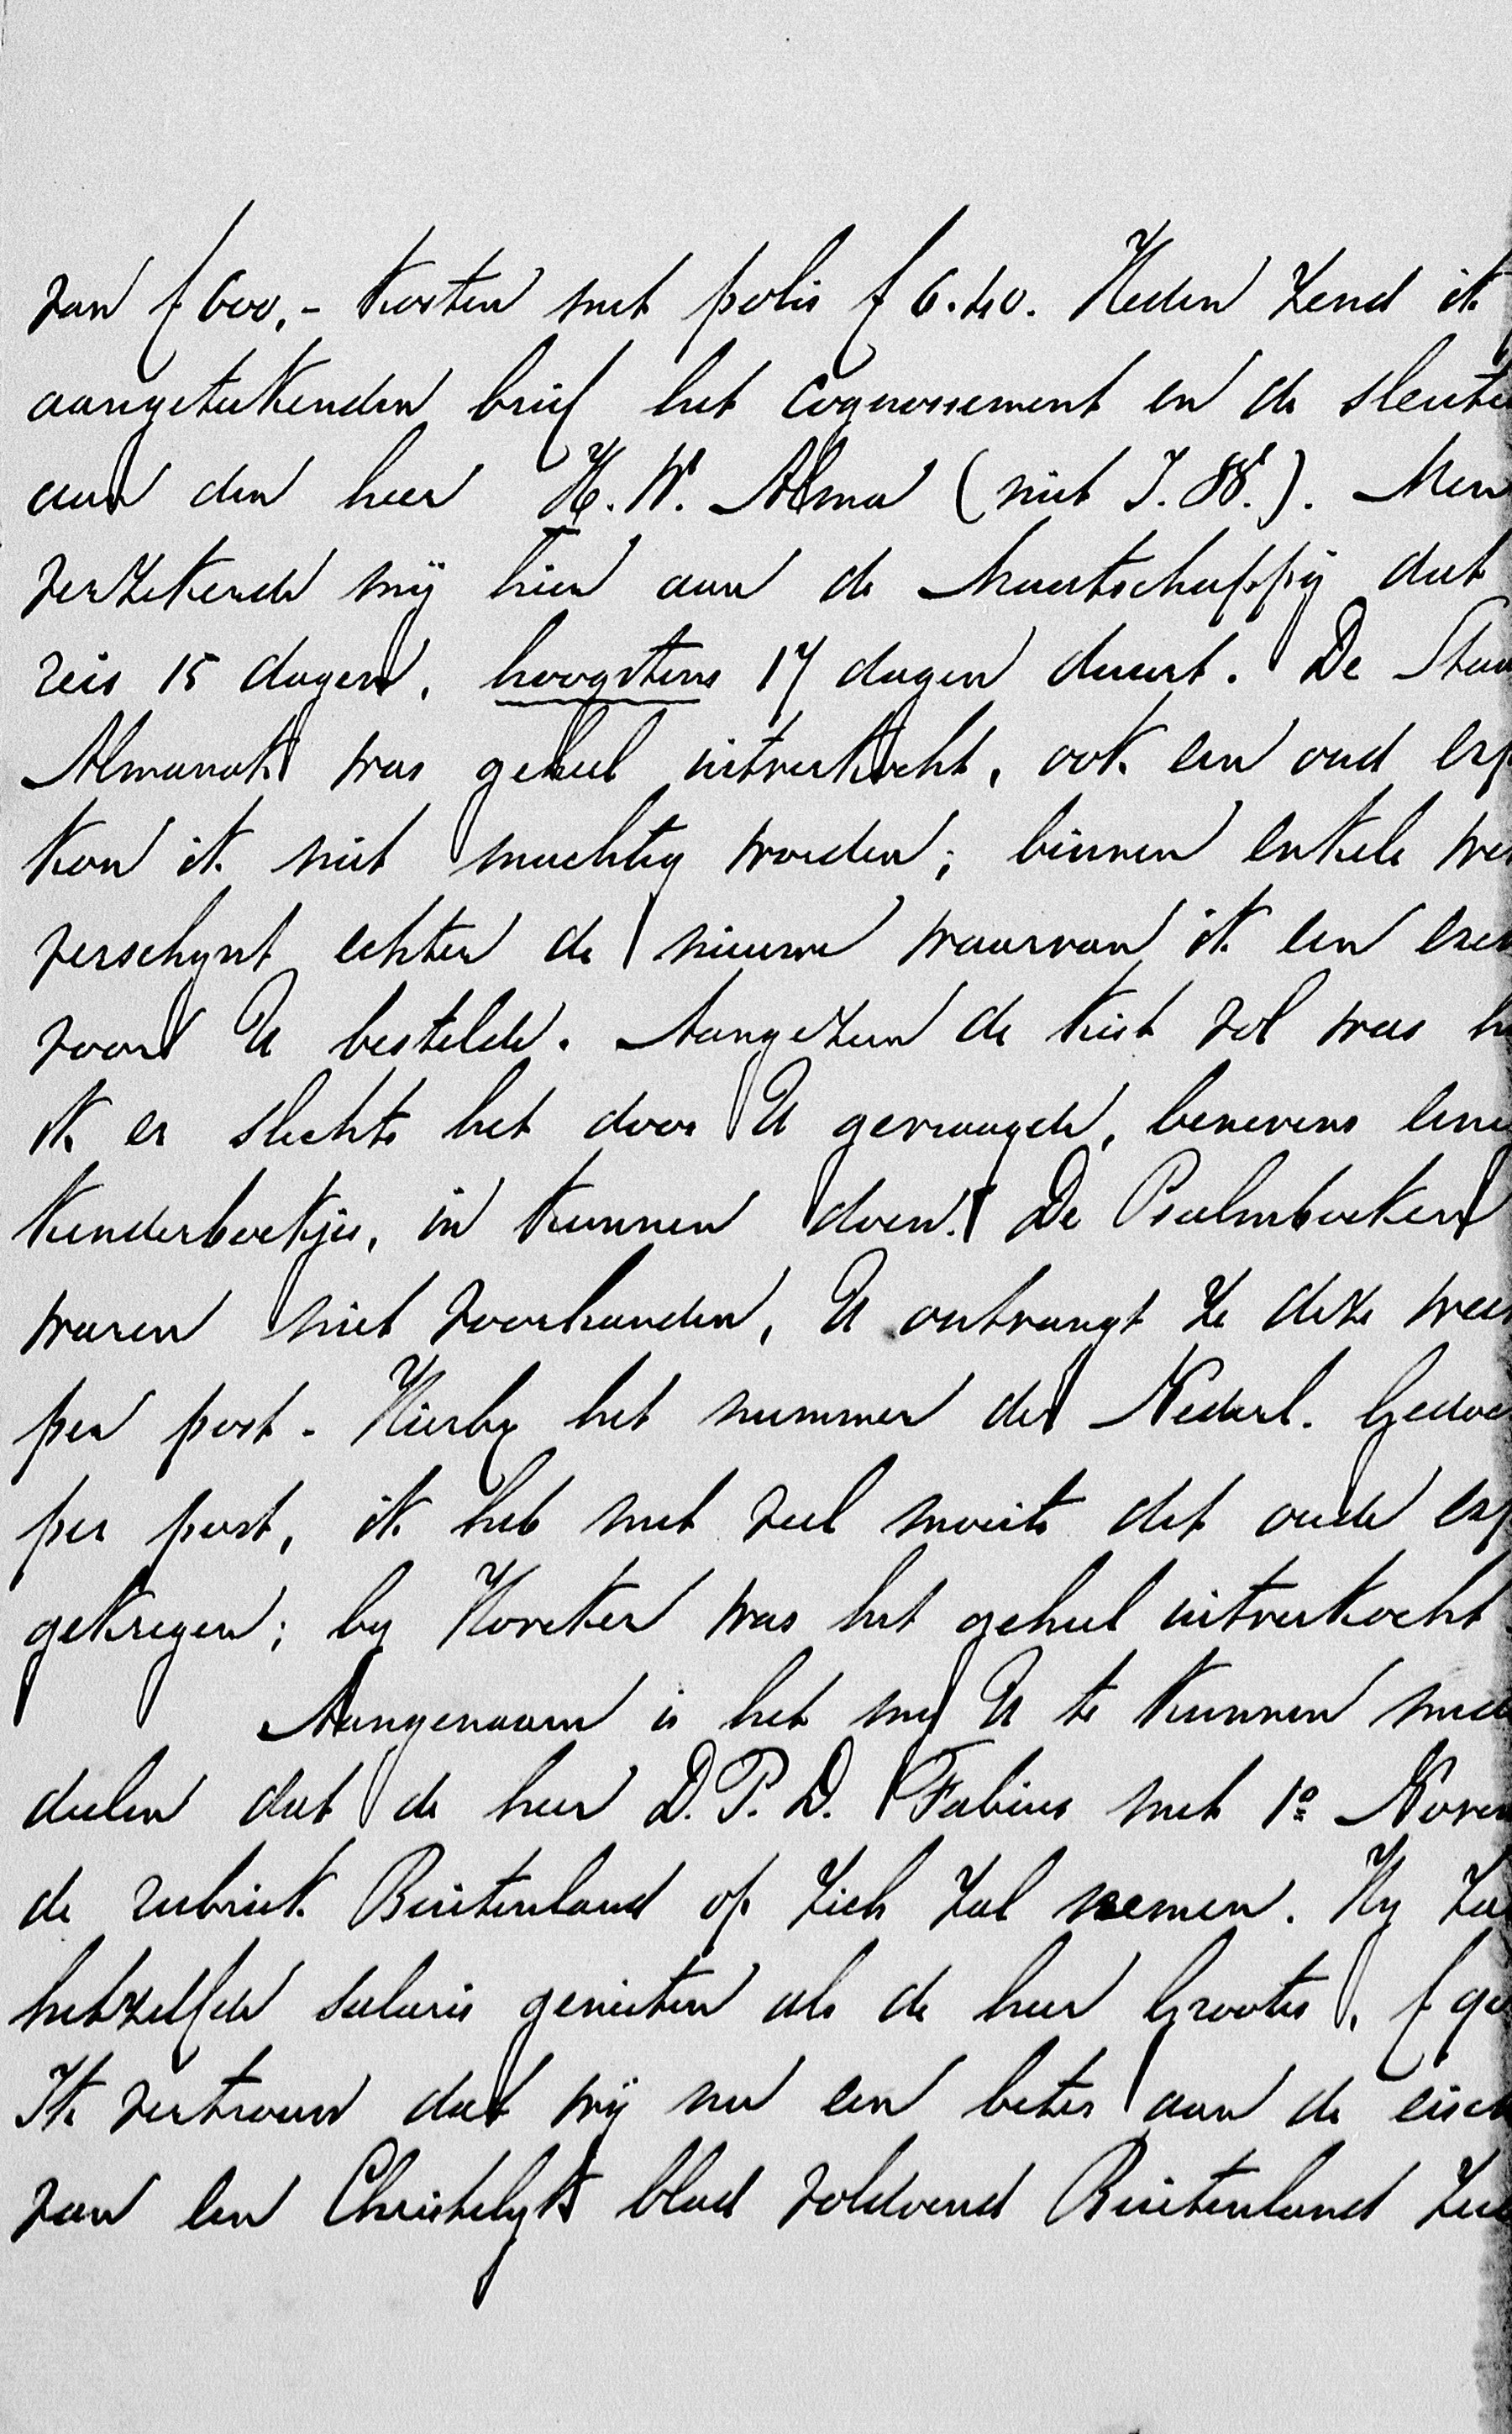 van f 600,- Kosten met polis f 6.40. Heden zend ik
aangeteekenden brief het cognossement en de sleute
aan den heer H. W. Alma (niet J. W.). Men
verzekerde mij hier aan de Maatschappij dat
reis 15 dagen, hoogstens 17 dagen duurt. De Staa
Almanak was geheel uitverkocht, ook een oud ex
kon ik niet machtig worden; binnen enkele we
verschynt echter de nieuwe waarvan ik een exe
voor U bestelde. Aangezien de kist vol was h
ik er slechts het door U gevraagde, benevens eni
kinderboekjes, in kunnen doen. De Psalmboeken
waren niet voorhanden, U ontvangt ze deze wee
per post. Hierby het nummer der Nederl. Gedac
per post, ik heb met veel moeite dit oude ex
gekregen; by Höveker was het geheel uitverkocht
Aangenaam is het my U te kunnen mee
deelen dat de heer D. P. D. Fabius met 1o Novem
de rubriek Buitenland op zich zal nemen. Hy za
hetzelfde salaris genieten als de heer Grootes, f
Ik vertrouw dat wij nu een beter aan de eisch
van een Christelyk blad voldoend Buitenland zu